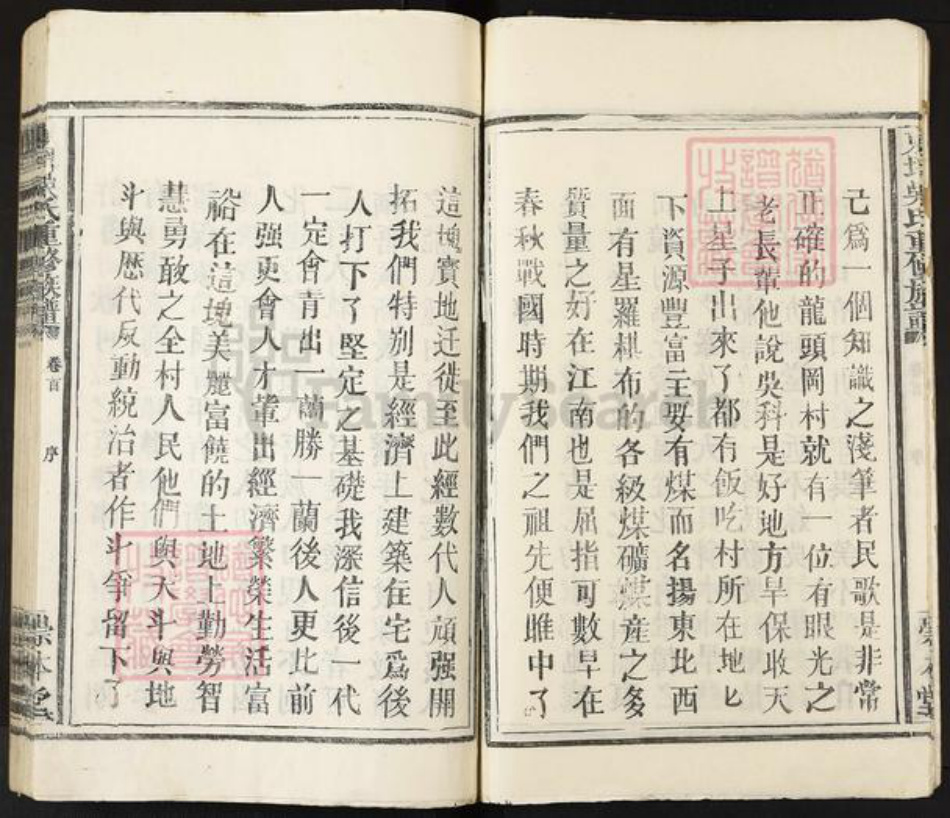 己爲一個知識之淺筆者民歌是非常
正確的龍頭岡村就有一位有眼光之
老長輩他說吳科是好地方旱保收天
上星子出來了都有飯吃村所在地
下資源豐富主要有煤而名揚東北西
面有星羅棋布的各級煤礦煤産之多
質量之好在江南也是屈指可數早在
春秋戰國時期我們之祖先便雎中了
這塊寶地迁徙至此經數代人頑强開
拓我們特別是經濟上建築住宅爲後
人打下了堅定之基礎我深信後一代
一定會青出一蘭勝一蘭後人更比前
人强更會人才輩出經濟繁榮生活富
裕在這塊美麗富饒的土地上勤勞智
慧勇敢之全村人民他們與天斗與地
斗與歷代反動統治者作斗争留下了
吳氏重修族譜
卷首
序
FamilySearch